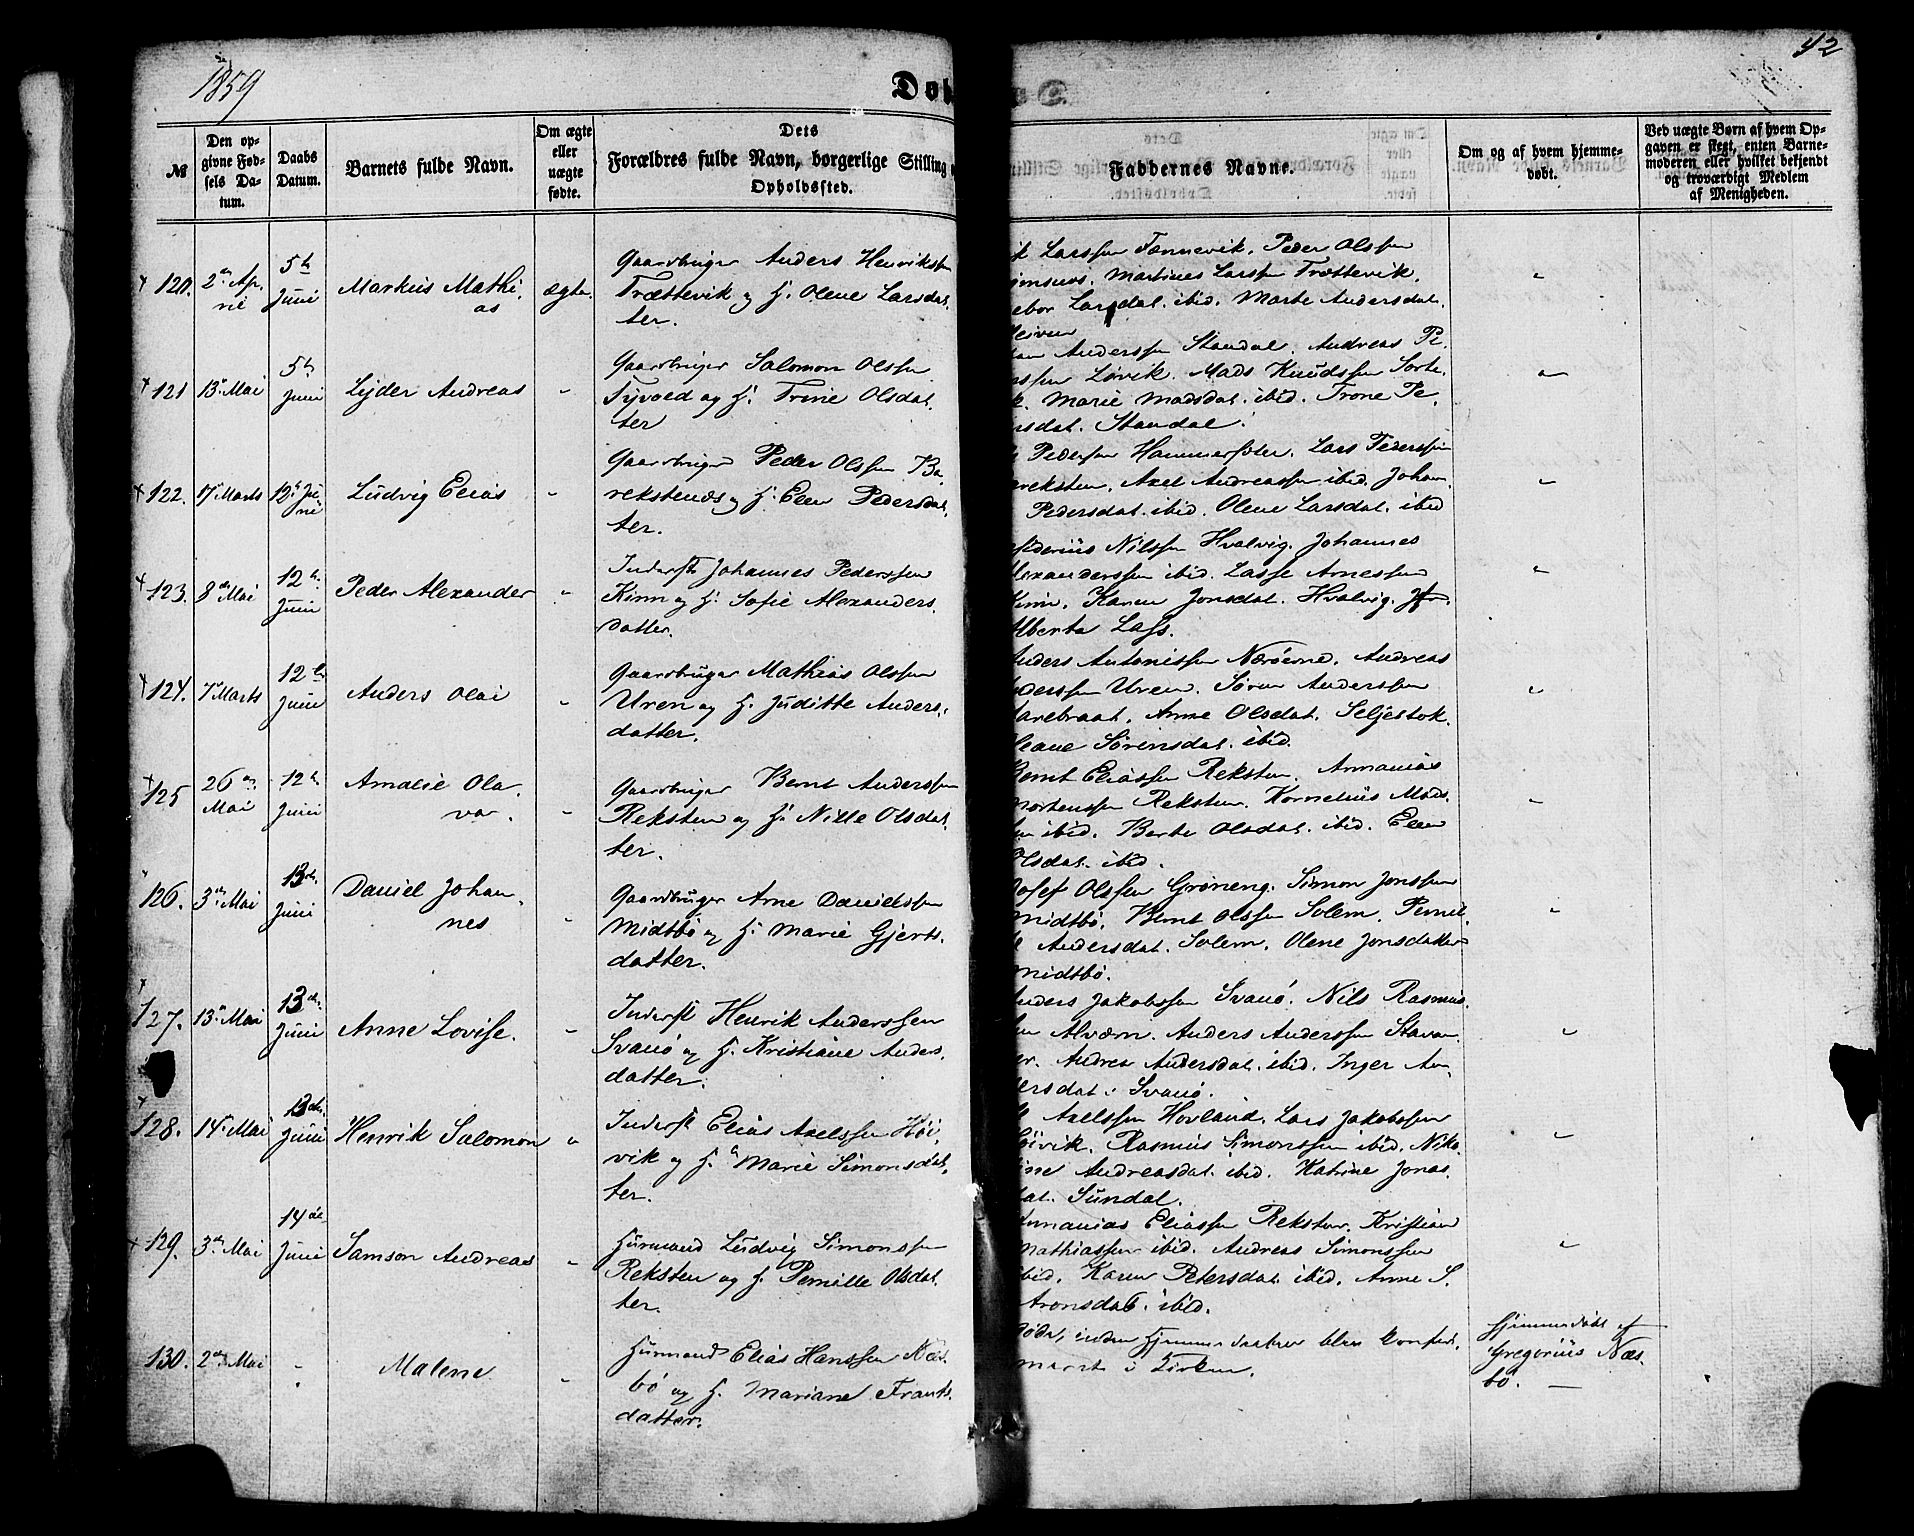 1859
42
Døb
№
Den op-
givne Fød-
sels Da-
tum.
Daabs
Datum.
Barnets fulde Navn.
Om ægte
eller
uægte
fødte.
Dets
Forældres fulde Navn, borgerlige Stilling o
Opholdssted.
Faddernes Navne.
Om og af hvem hjemme-
døbt.
Ved uægte Børn af hvem Op-
gaven er skeet, enten Barne-
moderen eller hvilket bekjendt
og troværdigt Medlem
af Menigheden.
120. 2den Ap,
ril
5te
Juni
Markus Mathi,
as
ægte.
Gaardbruger Anders Henrikssen
Trættevik og H. Olene Larsdat,
ter.
Larssen Fannevik. Peder Olssen
Martines Larssen Trættevik.
Larsdat. ibid. Marte Andersdat.
121 13de Mai
5te
Juni
Lyder Andreas
"
Gaardbruger Salomon Olssen
Tyvold og H. Trine Olsdat,
ter
Anderssen Standal. Andreas Pe,
rssen Løvik. Mads Knudssen Sorte,
Marie Madsdat. ibid. Trone Pe,
rsdat. Standal.
122. 17de Marts
12te Ju,
ni
Ludvig Elias
"
Gaardbruger Peder Olssen Ba,
rekstenes og H. Elen Pedersdat,
ter.
Pederssen Hammersøen. Lars Pederssen
reksten. Axel Andreassen ibid. Johan
Pedersdat. ibid. Olene Larsdat. ibid
123. 8de Mai
12te
Juni
Peder Alexander
"
Inderst Johannes Pederssen
Kinn og H. Sofie Alexanders,
datter.
Nilssen Hvalvig. Johannes
Alexanderssen ibid. Lasse Arnessen
Kinn. Karen Jonsdat. Hvalvig. Jfr.
Alberta Lass.
124. 7de Marts
12te
Juni
Anders Olai
"
Gaardbruger Mathias Olssen
Uren og H. Juditte Anders,
datter.
Anders Antonissen Nærøerne. Andreas
derssen Uren. Søren Anderssen
Marebraat. Anne Olsdat. Seljestok.
Sørensdat. ibid.
125 26de
Mai
12te
Juni
Amalie Ola,
va.
"
Gaardbruger Bernt Anderssen
Reksten og H. Nille Olsdat,
ter.
Bernt Eliassen Reksten. Annanias
Mortenssen Reksten. Kornelius Mads,
sen ibid. Berte Olsdat. ibid. Elen
Olsdat. ibid.
126. 3die Mai
13de
Juni
Daniel Johan,
nes
"
Gaardbruger Arne Danielssen
Midtbø og H. Marie Gjerts,
datter.
Josef Olssen Grøneng. Simon Jonssen
Midtbø. Bernt Olssen Solem. Pernil,
le Andersdat. Solem. Olene Jonsdatter
Midtbø.
127. 13de Mai
13de
Juni
Anne Lovise.
"
Inderst Henrik Anderssen
Svanø og H. Kristiane Anders,
datter.
Anders Jakobssen Svanø. Nils Rasmus,
sen Alværn. Anders Anderssen Stavan
ger. Andrea Andersdat. ibid. Inger An,
dersdat. Svanø.
128. 14de Mai
13de
Juni
Henrik Salomon
"
Inderst Elias Axelssen Høi,
vik og H. Marie Simonsdat,
ter.
Axelssen Hovland. Lars Jakobssen
Høivik. Rasmus Simonssen ibid. Niko,
line Andreasdat. ibid. Katrine Jonas,
dat. Sundal.
129. 3die Mai
14de
Juni
Samson Andreas
"
Huusmand Ludvig Simonssen
Reksten og H. Pernille Olsdat,
ter.
Annanias Eliassen Reksten. Kristian
Mathiassen ibid. Andreas Simonssen
ibid. Karen Petersdat. ibid. Anne S.
Aronsdat. ibid.
130. 2den Mai
"
Malene
"
Huusmand Elias Hanssen Næs,
bø og H. Mariane Frants,
datter.
Døde, inden Hjemmedaaben blev konfir,
meret i Kirken.
Hjemmedøbt af
Gregorius Næs,
bø. —